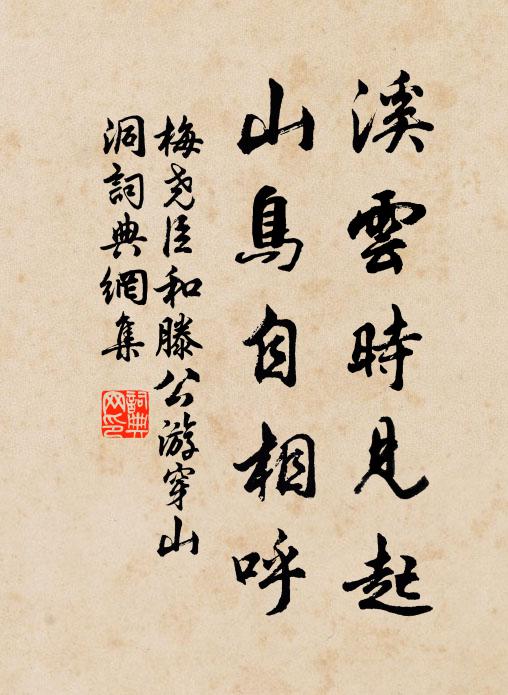 溪雲時見起
山鳥自相呼
梅尧臣和滕公游穿山
洞詞典網集
詞典网印